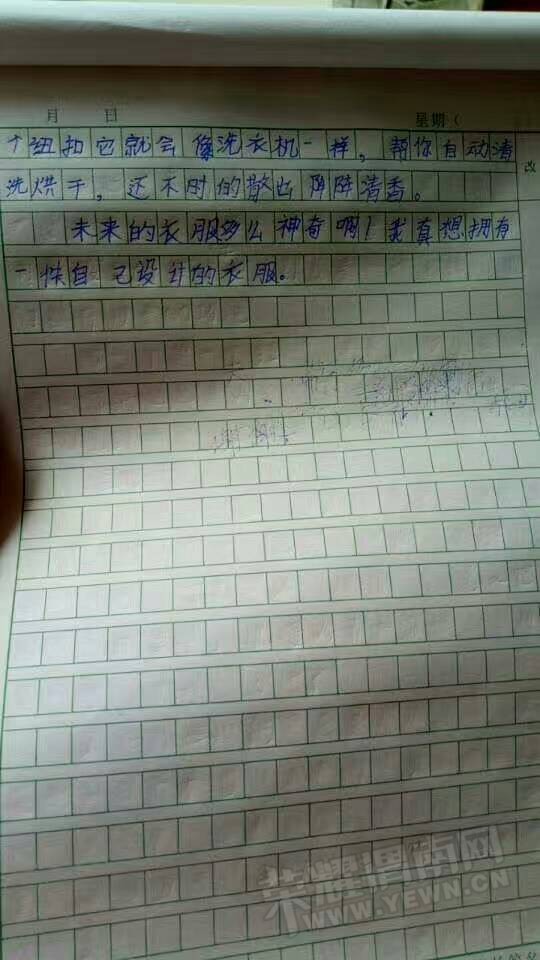 月 日 星期(
个纽扣它就会像洗衣机一样，帮你自动清
改
洗烘干，还不时的散出阵阵清香。
未来的衣服多么神奇啊！我真想拥有
一件自己设计的衣服。
荣耀渭南网
WWW.YEWN.CN